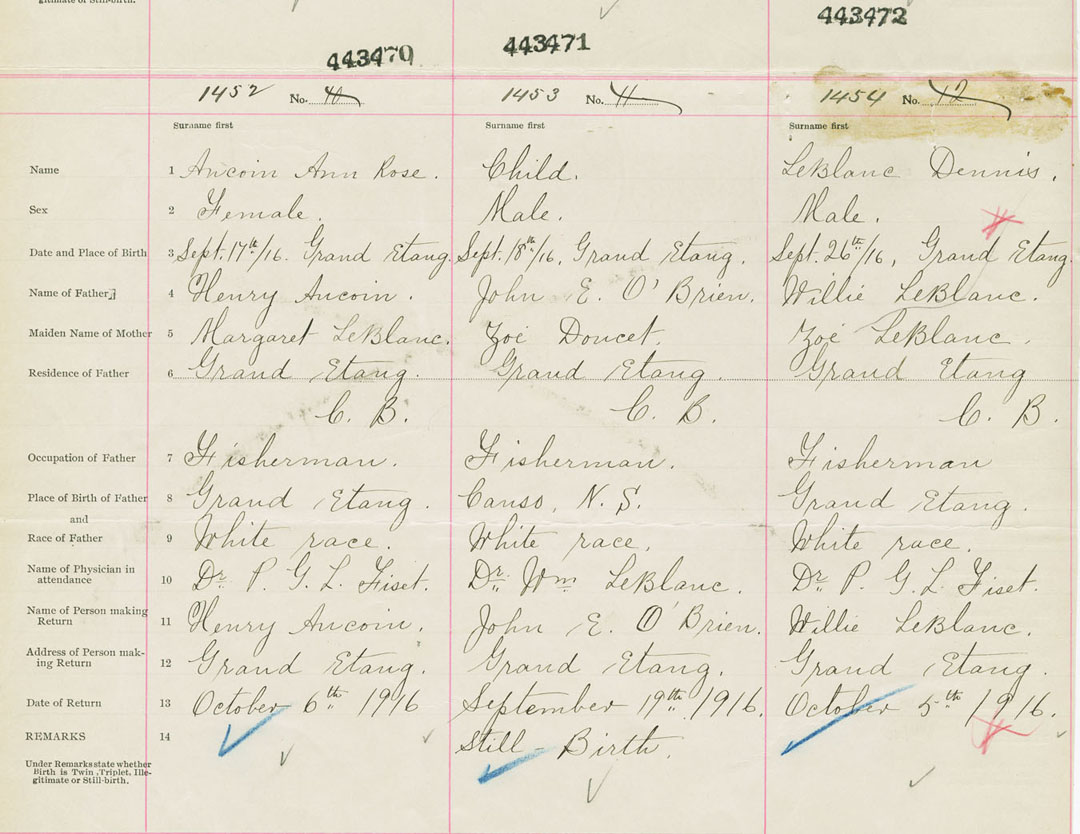 gitimate or Still-birth.
443470 443471 443472
1452 No. 10 1453 No. 11 1454 No. 12
Surname first Surname first Surname first
Name 1 Aucoin Ann Rose. Child. LeBlanc Dennis.
Sex 2 Female. Male. Male.
Date and Place of Birth 3 Sept. 17th/16. Grand Etang. Sept. 18th/16, Grand Etang. Sept. 26th/16, Grand Etang.
Name of Father 4 Henry Aucoin. John E. O'Brien. Willie LeBlanc.
Maiden Name of Mother 5 Margaret LeBlanc. Zoé Doucet. Zoé LeBlanc.
Residence of Father 6 Grand Etang. Grand Etang. Grand Etang
C. B. C. B. C. B.
Occupation of Father 7 Fisherman. Fisherman. Fisherman
Place of Birth of Father 8 Grand Etang. Canso, N. S. Grand Etang.
and
Race of Father 9 White race. White race. White race.
Name of Physician in
attendance 10 Dr. P. G. L. Fiset. Dr. Wm LeBlanc. Dr. P. G. L. Fiset.
Name of Person making
Return 11 Henry Aucoin. John E. O'Brien. Willie LeBlanc.
Address of Person mak-
ing Return 12 Grand Etang. Grand Etang. Grand Etang.
Date of Return 13 October 6th 1916 September 19th 1916. October 5th 1916.
REMARKS 14 Still-Birth.
Under Remarks state whether
Birth is Twin, Triplet, Ille-
gitimate or Still-birth.